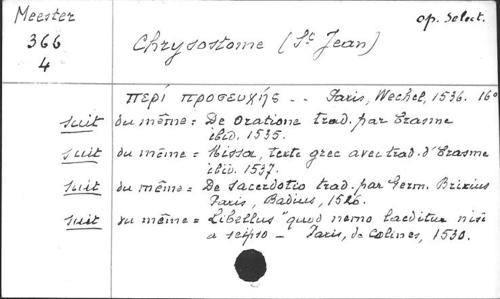 Meester
366
4
op. select.
Chrysostome (St Jean)
περί προσευχής .. Paris, Wechel, 1536. 16°
suit du même = De Oratione trad. par Erasme
ibid. 1535.
suit du même = Missa, texte grec avec trad. d'Erasme
ibid. 1537.
suit du même = De sacerdotio trad. par Germ. Brixius
Paris, Badius, 1526.
suit du même = Libellus "quod nemo laeditur nisi
a seipso - Paris, de Colines, 1530.